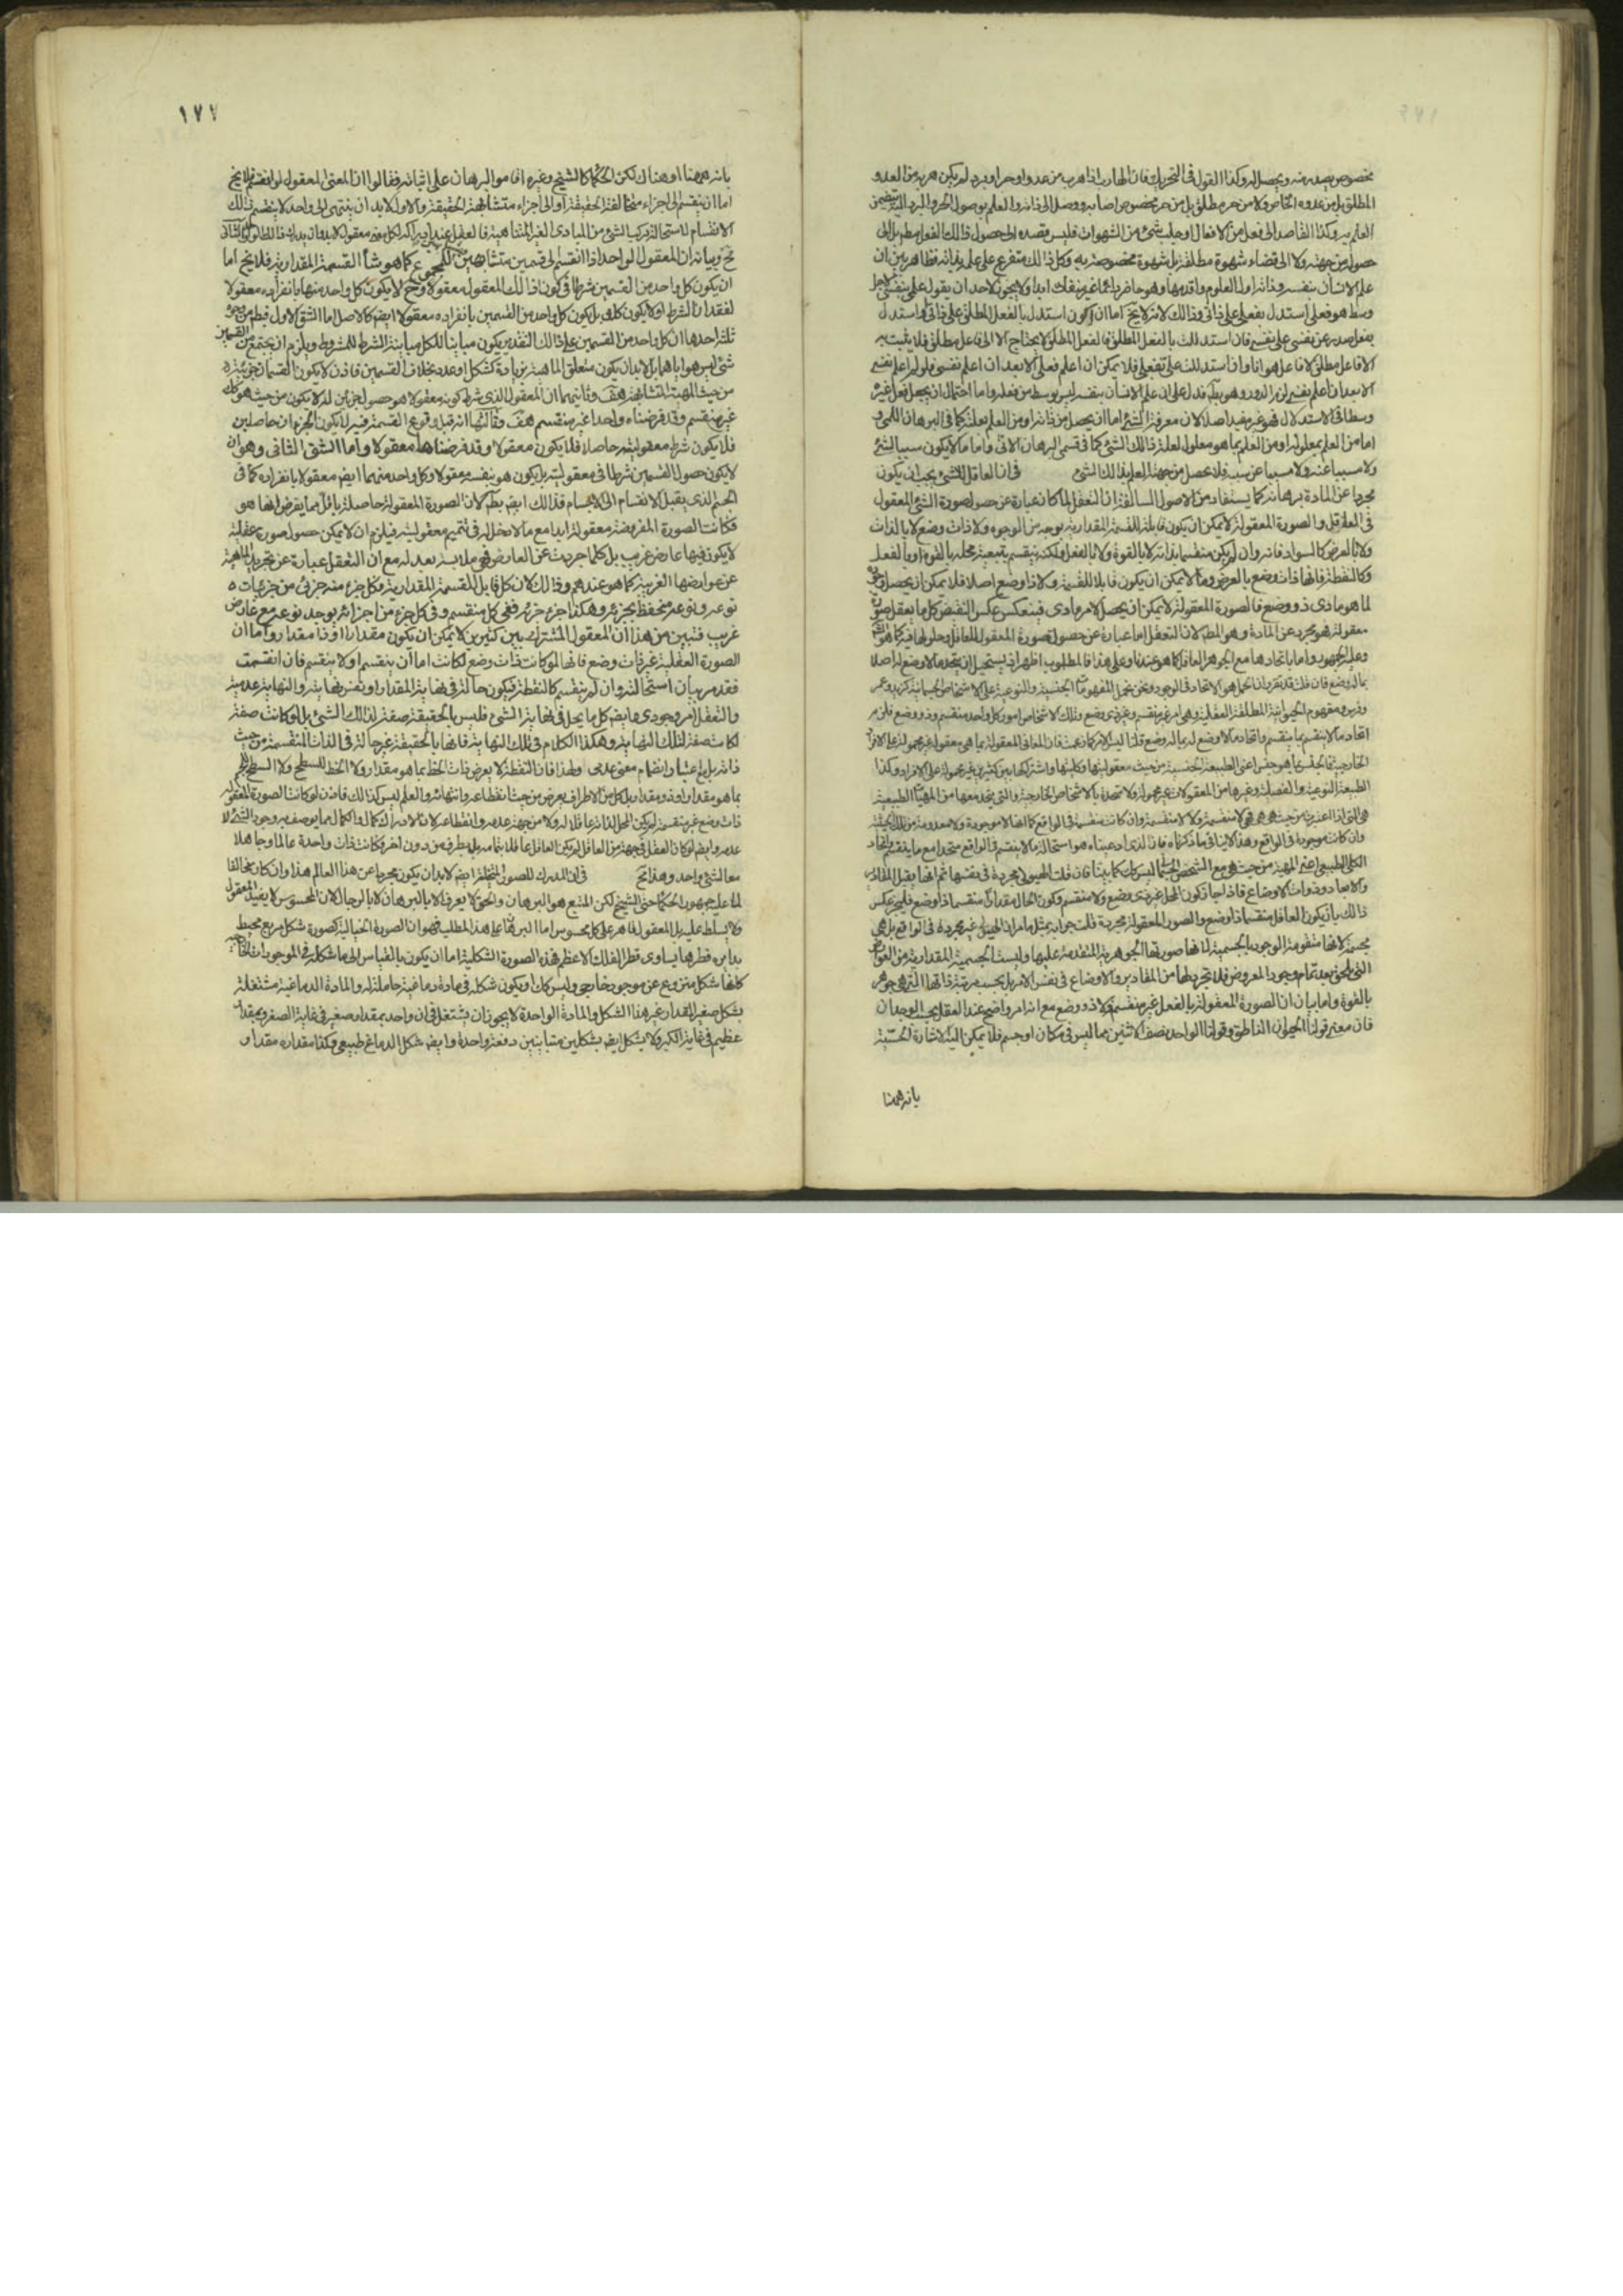 مخصوص يصدر منه ويحصل له وكذا القول في التحريك فان الهارب اذا هرب من عدو او حر او برد لم يكن هربه من العدو
المطلق بل من عدوه الخاص ولا من حر مطلق بل من حر مخصوص اصابه ووصل الى ذاته والعلم بوصول الحر والبرد اليه يتضمن
العلم به وكذا القاصد الى فعل من الافعال او جلب شئ من الشهوات فليس قصده الى حصول ذالك الفعل مطم بل الى
حصوله من جهته ولا الى قضاء شهوة مطلقة بل شهوة مخصوصة به وكل ذالك متفرع على علمه بذاته فظاهر بين ان
علم الانسان بنفسه وذاته اول العلوم واقدمها وهو حاضر دائما غير منفك ابدا ولا يجوز لاحد ان يقول علمي بنفسي لاجل
وسط هو فعلي استدل بفعلي على ذاتي وذالك لانه لا يخ اما ان اكون استدل بالفعل المطلق على ذاتي او استدل
بفعل صدر عن نفسي على نفسي فان استدللت بالفعل المطلق فالفعل المطلق لا يحتاج الا الى فاعل مطلق فلا يثبت به
الا فاعل مطلق لا فاعل هو انا وان استدللت على بفعلي فلا يمكن ان اعلم فعلي الا بعد ان اعلم نفسي فلو لم اعلم نفسي
الا بعد ان اعلم نفسي لزم الدور وهو بط فدل على ان علم الانسان بنفسه ليس بوسط من فعله واما احتمال ان يجعل فعل غيره
وسطا في الاستدلال فهو غير مفيد اصلا لان معرفة الشئ اما ان يحصل من ذاته او من العلم بعلته كما في البرهان اللمي و
اما من العلم بمعلوله او من العلم بما هو معلول لعلة ذالك الشئ كما في قسمي البرهان الاني واما ما لا يكون سببا لشئ
ولا مسببا عنه ولا مسببا عن سببه فلا يحصل من جهته العلم بذالك الشئ في ان العاقل للشئ يجب ان يكون
مجردا عن المادة برهانه كما يستفاد من الاصول السالفة ان التعقل لما كان عبارة عن حصول صورة الشئ المعقول
في العاقل والصورة المعقولة لا يمكن ان يكون قابلة للقسمة المقدارية بوجه من الوجوه ولا ذات وضع لا بالذات
ولا بالعرض كالسواد فانه وان لم يكن منقسما بذاته لا بالقوة ولا بالفعل ولكنه ينقسم بتبعية محله بالقوة او بالفعل
وكالنقطة فانها ذات وضع بالعرض وما لا يمكن ان يكون قابلا للقسمة ولا ذا وضع اصلا فلا يمكن ان يحصل وجوده
لما هو مادى ذو وضع فالصورة المعقولة لا يمكن ان يحصل لامر مادى فينعكس عكس النقيض كل ما يعقل صورة
معقولة فهو مجرد عن المادة وهو المط لان التعقل اما عبارة عن حصول صورة المعقول للعاقل وحلولها فيه كما هو المشهور
وعليه الجمهور واما باتحادها مع الجوهر العاقل كما هو عندنا وعلى هذا فالمطلوب اظهر اذ يستحيل ان يتحد ما لا وضع له اصلا
بما له وضع فان قلت قد تقرر ان الحمل هو الاتحاد في الوجود ونحن نحمل المفهومات الجنسية والنوعية على الاشخاص الجسمانية كزيد وعمر
وفرس ومفهوم الحيوانية المطلقة العقلية وهى امر غير منقسم وغير ذى وضع وتلك الاشخاص امور كل واحد منقسم وذو وضع فلزم
اتحاد ما لا ينقسم بما ينقسم واتحاد ما لا وضع له بما له وضع قلنا ليس الامر كما زعمت فان المعانى المعقولة بما هى معقولة غير محمولة على الافراد
الخارجية فالجنس بما هو جنس اعنى الطبيعة الجنسية من حيث معقوليتها وكليتها واشتراكها بين كثيرين غير محمولة على الافراد وكذا
الطبيعة النوعية والفصلية وغيرها من المعقولات غير محمولة ولا متحدة بالاشخاص الخارجية والتى يتحد معها من المهيات الطبيعية
هى التى اذا اعتبرت من حيث هى هى فهى لا منقسمة ولا لا منقسمة وان كانت منقسمة في الواقع كما انها لا موجودة ولا معدومة من تلك الحيثية
وان كانت موجودة في الواقع وهذا لا ينافى ما ذكرناه فان الذى ادعيناه هو استحالة ما لا ينقسم في الواقع متحدا مع ما ينقسم واتحاد
الكلى الطبيعى اعنى المهية من حيث هى مع الشخص الجسمانى ليس كك كما بينا فان قلت الهيولى مجردة في نفسها ثم انها يقبل المقادير
والابعاد وذوات الاوضاع فاذا جاز كون المحل غير ذى وضع ولا منقسم وكون الحال مقدارا منقسما ذا وضع فليجز عكس
ذالك بان يكون العاقل منقسما ذا وضع والصور المعقولة مجردة قلت جوابه بمثل ما مر ان الهيولى غير مجردة في الواقع بل هى
مجسمة لانها متقومة الوجود بالجسمية لانها صورتها الجوهرية المتقدمة عليها وليست الجسمية المقدارية من العوارض
التى تلحق بعد تمام وجود المعروض فلا تجرد لها من المقادير والاوضاع في نفس الامر بل بحسب مرتبة ذاتها التى هى جوهر
بالقوة واما بيان ان الصورة المعقولة بالفعل غير منقسم ولا ذو وضع مع انه امر واضح عند العقل بحسب الوجدان
فان معنى قولنا الحيوان الناطق وقولنا الواحد نصف الاثنين مما ليس في مكان او جسم فلا يمكن اليه الاشارة الحسية
بانه ههنا
١٧٧
بانه ههنا او هناك لكن الحكما كالشيخ وغيره اقاموا البرهان على اثباته فقالوا ان المعنى المعقول لو انقسم فلا يخ
اما ان ينقسم الى اجزاء مخالفة الحقيقة او الى اجزاء متشابهة الحقيقة والاول لا بد ان ينتهى الى واحد لا ينقسم ذالك
الانقسام لاستحالة تركب الشئ من المبادى الغير المتناهية
ان يكون كل واحد من القسمين شرطا في كون ذالك المعقول معقولا وح لا يكون كل واحد منهما بانفراده معقولا
لفقدان الشرط او لا يكون كك بل يكون كل واحد من القسمين بانفراده معقولا ايضا كالاصل اما الشق الاول فبط من وجوه
ثلثة احدها ان كل واحد من القسمين على ذالك التقدير يكون مباينا للكل مباينة الشرط للمشروط ويلزم ان يجتمع من القسمين
شئ ليس هو اياهما بل لا بد ان يكون متعلق الماهية بزيادة كشكل او عدد بخلاف القسمين فاذن لا يكون القسمان جزئيه
من حيث المهية المتشابهة هف وثانيهما ان المعقول الذى شرط كونه معقولا هو حصول جزئين له لا يكون من حيث هو كك
غير منقسم وقد فرضناه واحدا غير منقسم هف وثالثها انه قبل وقوع القسمة فيه لا يكون الجزءان حاصلين
فلا يكون شرط معقوليته حاصلا فلا يكون معقولا وقد فرضناها معقولا واما الشق الثانى وهو ان
لا يكون حصول القسمين شرطا في معقوليته بل يكون هو بنفسه معقولا وكل واحد منهما ايضا معقولا بانفراده كما في
الجسم الذى يقبل الانقسام الى الاجسام فذالك ايضا بط لان الصورة المعقولة حاصلة باقل مما يفرض انها هو
فكانت الصورة المفروضة معقولة ابدا مع ما لا دخل له في تتميم معقوليته فيلزم ان لا يمكن حصول صورة عقلية
لا يكون فيها عارض غريب بل كلما جردت عن العارض فهى ملابسة بعد له مع ان التعقل عبارة عن تجريد الماهية
عن عوارضها الغريبة كما هو عندهم وذالك لان كل قابل للقسمة المقدارية فكل جزء منه جزئى من جزئيات
نوعه ونوعه منحفظ بجزئه وهكذا جزء جزئه ففى كل منقسم وفى كل جزء من اجزائه يوجد نوعه مع عارض
غريب فتبين من هذا ان المعقول المشترك بين كثيرين لا يمكن ان يكون مقدارا او ذا مقدار واما ان
الصورة العقلية غير ذات وضع فانها لو كانت ذات وضع لكانت اما ان ينقسم او لا ينقسم فان انقسمت
فقد مر بيان استحالته وان لم ينقسم كالنقطة فيكون حالة في نهاية المقدار او نفس نهايته والنهاية عدمية
والتعقل امر وجودى وايضا كل ما يحل في نهاية الشئ فليس بالحقيقة صفة لذالك الشئ بل لو كانت صفة
لكانت صفة لتلك النهاية وهكذا الكلام في تلك النهاية فانها بالحقيقة غير حالة في الذات المنقسمة من حيث
ذاته بل باعتبار انضمام معنى عدمى ولهذا فان النقطة لا يعرض ذات الخط بما هو مقدار ولا الخط للسطح ولا السطح للجسم
بما هو مقدار او ذو مقدار بل كل من الاطراف يعرض من حيث انقطاعه وانتهائه والعلم ليس كذالك فاذن لو كانت الصورة المعقولة
ذات وضع غير منقسمة لم يكن المحل لذاته عاقلا له ولا من جهة عدمه وانقطاعه لان الادراك كمال والكمال مما يوصف به وجود الشئ لا
عدمه وايضا لو كان العقل في جهة من العاقل لم يكن العاقل عاقلا بتمامه بل بطرف من دون اخر فكانت ذات واحدة عالما وجاهلا
معا لشئ واحد وهذا مح في ان المدرك للصور المتخيلة ايضا لا بد ان يكون مجردا عن هذا العالم هذا وان كان مخالفا
لما عليه جمهور الحكما حتى الشيخ لكن المتبع هو البرهان والحق لا يعرف الا بالبرهان لا بالرجال
بدايره قطرها يساوى قطر الفلك الاعظم فهذه الصورة الشكلية اما ان يكون بالقياس الى ما شكله في الموجودات الخارجية
كانها شكل منزوع عن موجود خارجى وليس كك او يكون شكله في مادة دماغية حاملة له والمادة الدماغية مشتغلة
بشكل صغير المقدار غير هذا الشكل والمادة الواحدة لا يجوز ان يشتغل في ان واحد بمقدار صغير في غاية الصغر وبمقدار
عظيم في غاية الكبر ولا بشكل ايضا بشكلين متباينين دفعة واحدة وايضا شكل الدماغ طبيعى وكذا مقداره مقدار